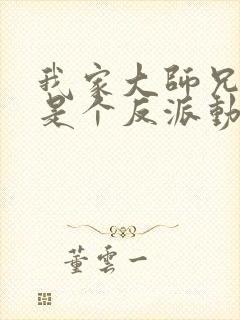 我家大師兄
是个反派動
董雲一